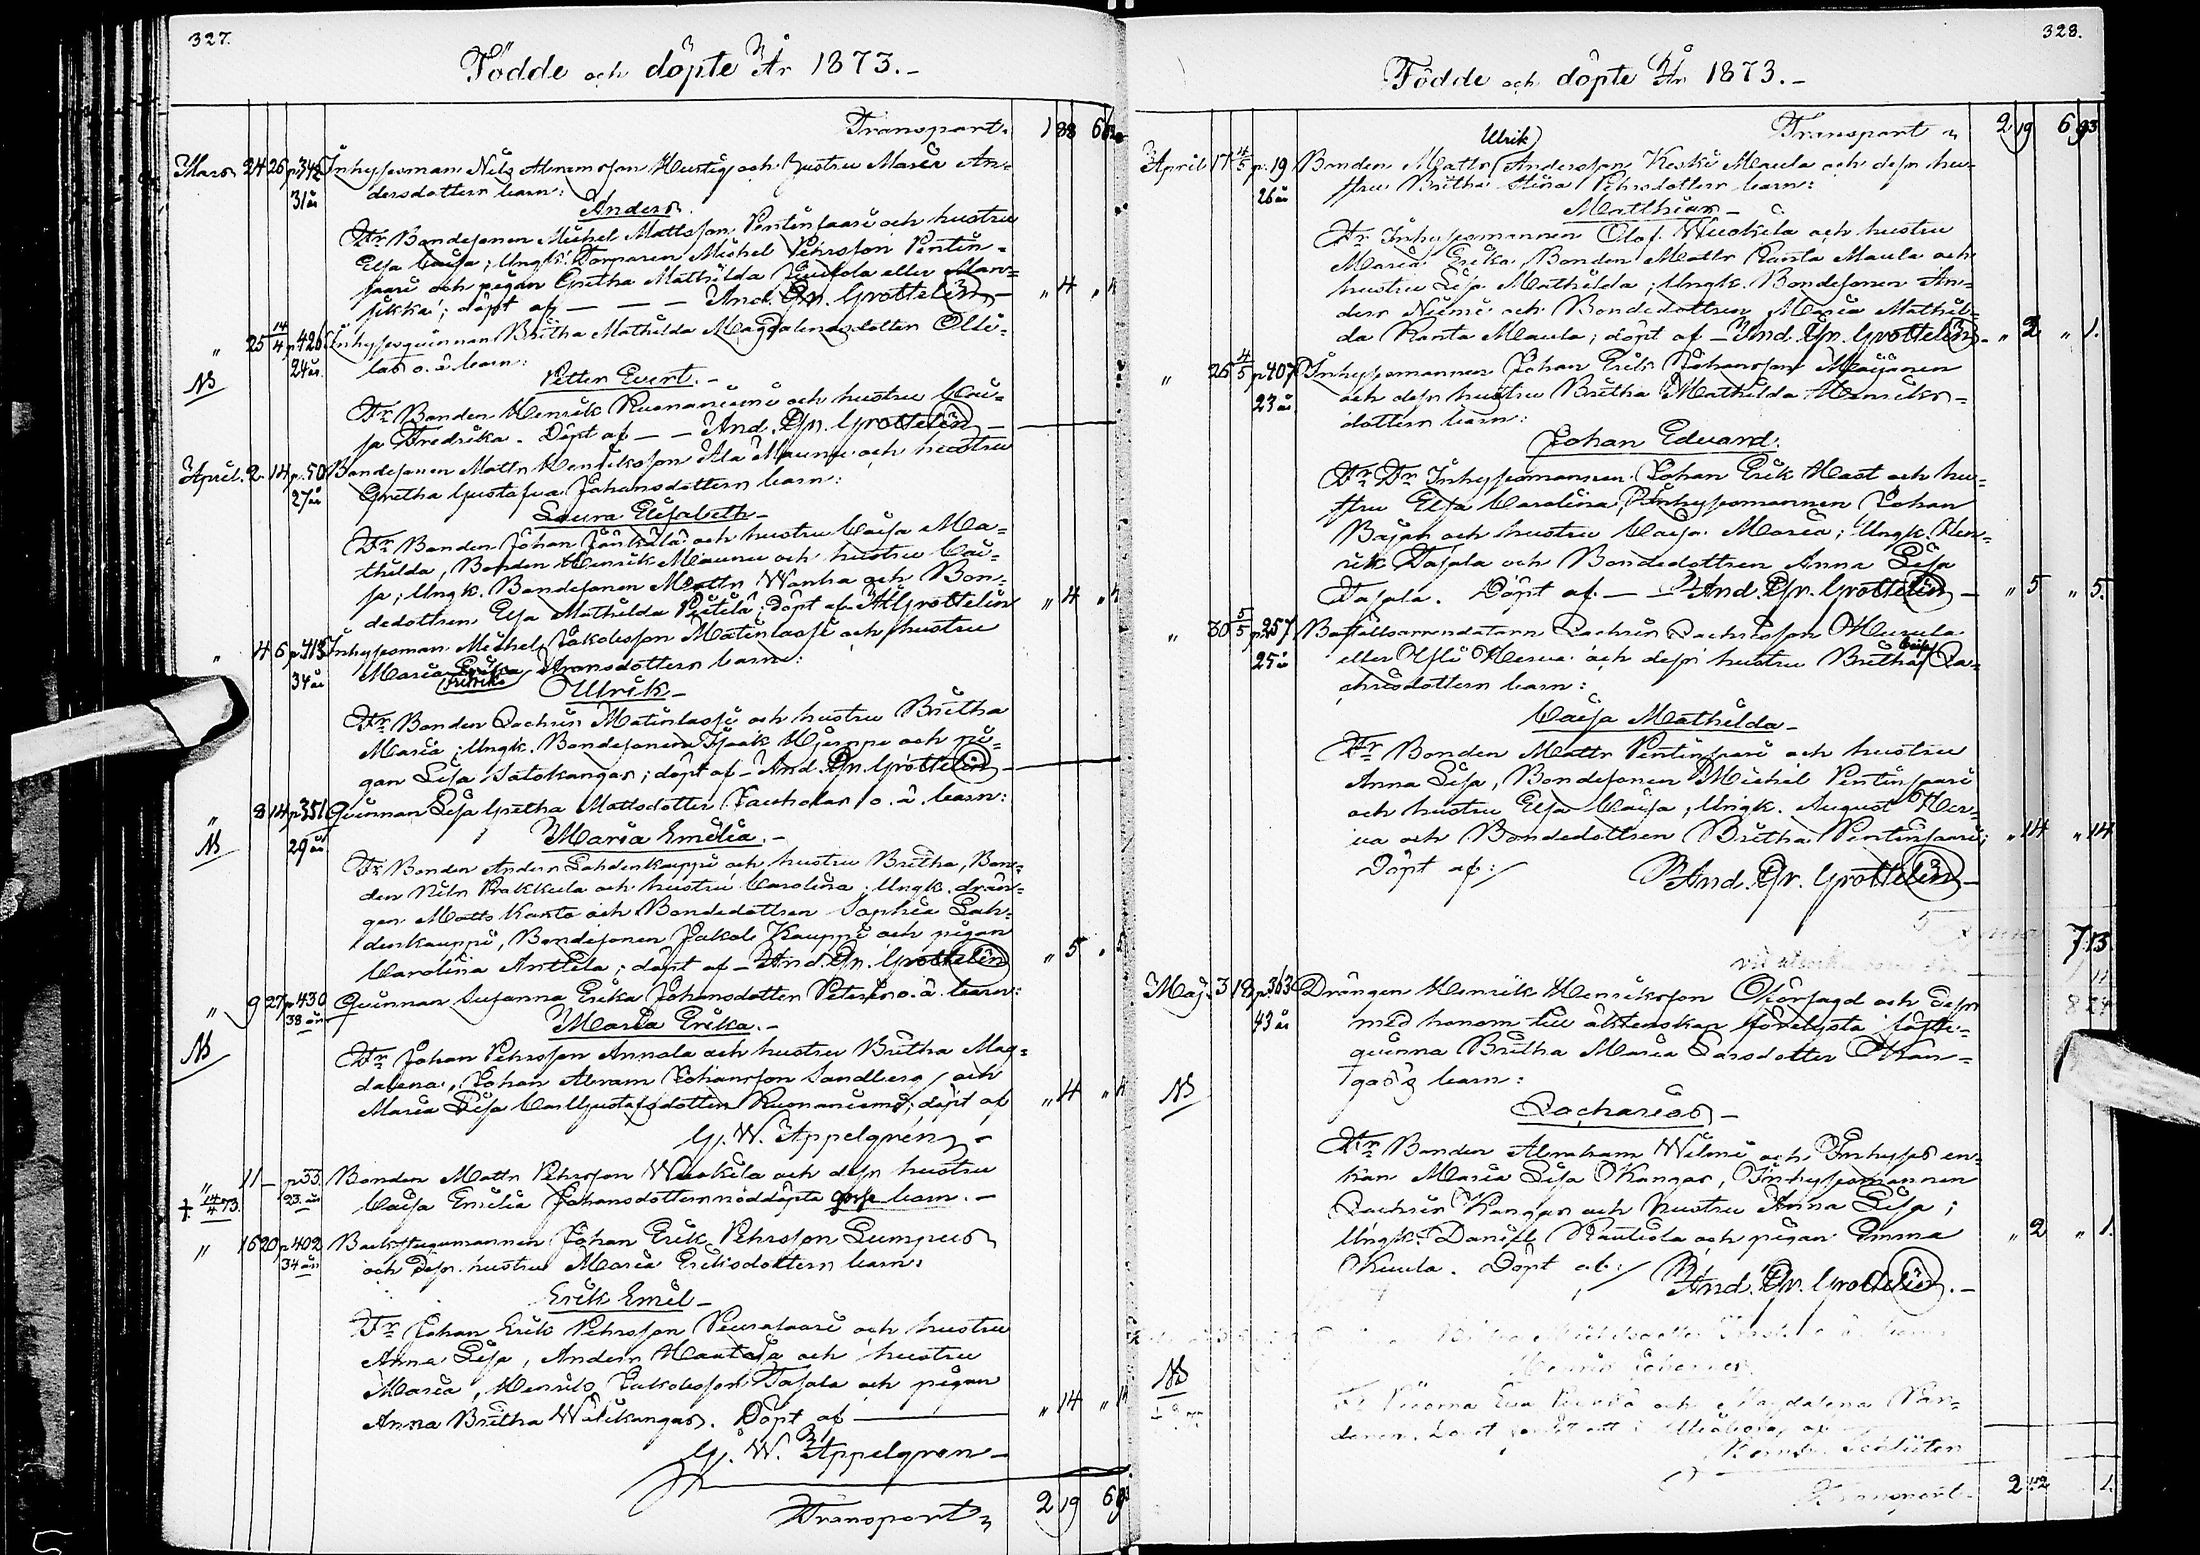 327.
Födde och döpte År 1873.-
Transport. 1 88 6
Mars 24 26 p.342 Inhysesman Nils Abramsson Hustig och hustru Maria An-
31 år dersdotters barn:
Anders.
Fr Bondesonen Michel Mattsson Pentinsaari och hustru
Elsa Caisa; Ungk. Torparen Michel Pehrsson Pentin-
saari och pigan Gretha Mathilda eller Man-
sikka; döpt af — — — And. Gr. Grottelin „ 4 „ 4
„ 25 14/4 p.426 Inhysesqvinnan Britha Mathilda Magdalenasdotter Olli-
24 år las o.ä. barn:
NB Petter Evert.-
Fr Bonden Henrik Ruonaniemi och hustru Cai-
sa Fredrika. Döpt af — — And. Gr. Grottelin —
April. 2. 14. p.50 Bondesonen Matts Henriksson Ala Maunu och hustru
27 år Gretha Gustafva Johansdotters barn:
Laura Elisabeth-
Fr Bonden Johan Jänkälä och hustru Caisa Ma-
thilda, Bonden Henrik Maunu och hustru Cai-
sa; Ungk. Bondesonen Matts Wanha och Bon-
dedottren Elsa Mathilda Pietilä; döpt af A Grottelin „ 4 „ 4
„ 4 6 p.413 Inhysesman Michel Jakobsson Matinlassi och hustru
34 år Maria Fredrika Abramsdotters barn:
Ullrik-
Fr Bonden Zachris Matinlassi och hustru Britha
Maria; Ungk. Bondesonen Isaak Hjerppe och pi-
gan Lisa Satokangas; döpt af - And. Gr. Grottelin —
„ 8 14 p.351 Qvinnan Lisa Gretha Mattsdotter o.ä. barn:
NB 29 år Maria Emilia.-
Fr Bonden Anders Lahdenkauppi och hustru Britha, Bon-
den Nils Rakkula och hustru Carolina; Ungk. drän-
gen Matts Kanto och Bondedottren Sophia Lah-
denkauppi, Bondesonen Jakob Kauppi och pigan
Carolina Anttila; döpt af - And. Gr. Grottelin „ 5 „ 5
„ 9 27 p.430 Qvinnan Susanna Erika Johansdotter Peteris o.ä. barn:
38 år Maria Erika.-
NB Fr Johan Pehrsson Annala och hustru Britha Mag-
dalena, Johan Abram Johansson Sandberg och
Maria Lisa Carl Gustafsdotter Ruonaniemi; döpt af „ 4 „ 4
G. W. Appelgrén -
„ 11 — p.33. Bonden Matts Pehrsson Wuokila och dess hustru
† 14/4 73. 23 år Caisa Emilia Johansdotters nöddöpta gosse barn.-
„ 16 20 p.402 Backstugumannen Johan Erik Pehrsson Lumpus
34 år och dess hustru Maria Eriksdotters barn:
Erik Emil-
Fr Johan Erik Pehrsson Peurasaari och hustru
Anna Lisa, Anders Hautala och hustru
Maria, Henrik Jakobsson Tasala och pigan
Anna Britha Wilikangas. Döpt af — „ 14 „ 14
G. W. Appelgren-
Transport 2 19 6 93
328.
Födde och döpte År 1873.-
Transport 2 19 6 93
April 17 4/5 p.19 Bonden Matts Ulrik Andersson Keski Maula och dess hu-
26 år stru Britha Stina Pehrsdotters barn:
Matthias-
Fr Inhysesmannen Olof Wuokila och hustru
Maria Erika, Bonden Matts Ranta Maula och
hustru Lisa Mathilda; Ungk. Bondesonen An-
ders Niemi och Bondedottren Maria Mathil-
da Ranta Maula; döpt af - And. Gr. Grottelin. „ 2 „ 1.
„ 26 4/5 p.407 Inhysesmannen Johan Erik Johansson
23 år och dess hustru Britha Mathilda Henriks-
dotters barn:
Johan Eduard.
Fr Inhysesmannen Johan Erik Hast och hu-
stru Elsa Carolina, Inhysesmannen Johan
Bajah och hustru Caisa Maria; Ungk. Hen-
rik Tasala och Bondedottren Anna Lisa
Tasala. Döpt af — — And. Gr. Grottelin - „ 5 „ 5.
„ 30 5/5 p.257 Zachris Zachrisson
25 år eller Yli Herva och dess hustru Britha Caisa Za-
chrisdotters barn:
Caisa Mathilda-
Fr Bonden Matts Pentinsaari och hustru
Anna Lisa, Bondesonen Michel Pentinsaari
och hustru Elsa Caisa; Ungk. August Her-
va och Bondedottren Britha Pentinsaari; „ 14 „ 14
Döpt af:/ And. Gr. Grottelin -
7.13.
Maj. 3 18 p.363 Drängen Henrik Henriksson och dess
43 år med honom till äktenskap förelysta fäste-
qvinna Britha Maria Larsdotter Kan-
NB gas's barn:
Zacharias-
Fr Bonden Abraham Wilmi och Inhyses en-
kan Maria Lisa Kangas, Inhysesmannen
Zachris Kangas och hustru Anna Lisa;
Ungk. Daniel Rautiola och pigan Emma „ 2 „ 1.
Kuula. Döpt af:/ And. Gr. Grottelin.-
NB
Fr
Transport 2